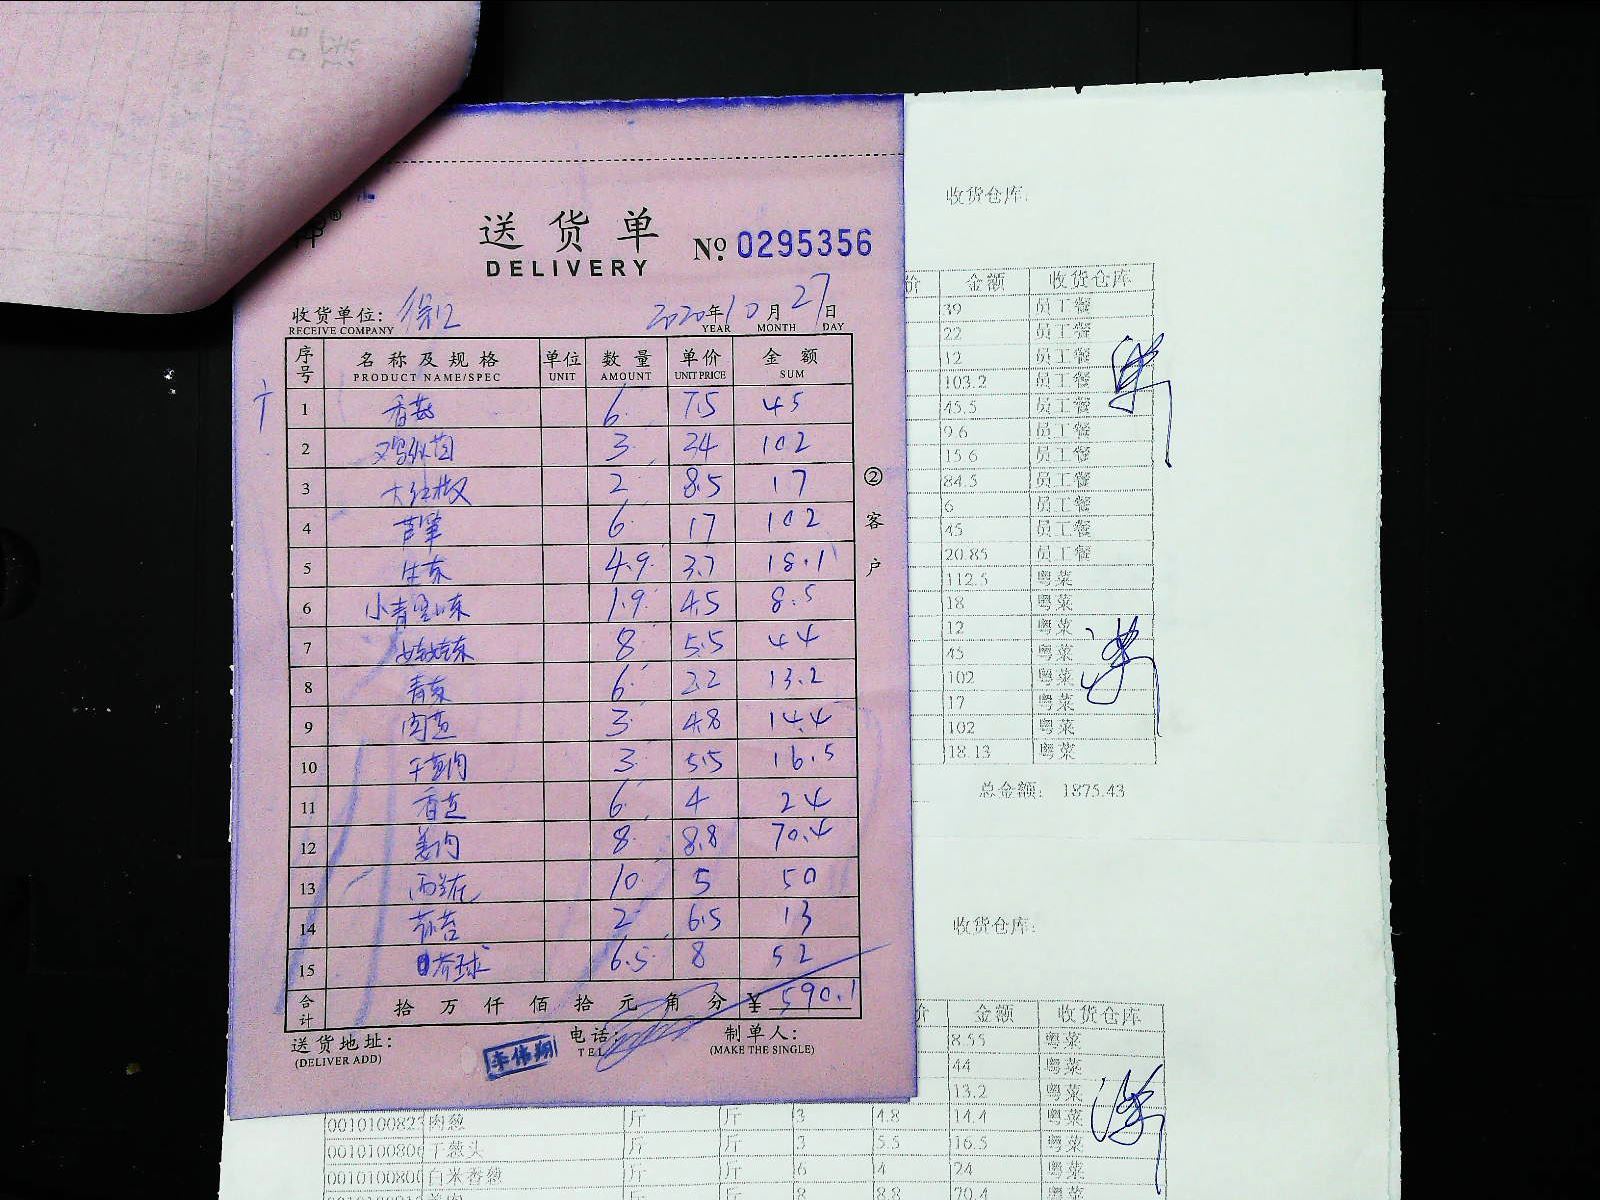 送货单
DELIVERY
No. 0295356
收货单位: 徐汇 2020年10月27日
RECEIVE COMPANY YEAR MONTH DAY
序号 名称及规格 单位 数量 单价 金额
PRODUCT NAME/SPEC UNIT AMOUNT UNIT PRICE SUM
1 香菇 6 7.5 45
2 鸡枞菌 3 34 102
3 大红椒 2 8.5 17
4 芦笋 6 17 102
5 生菜 4.9 3.7 18.1
6 小青菜 1.9 4.5 8.5
7 娃娃菜 8 5.5 44
8 青菜 6 2.2 13.2
9 肉葱 3 4.8 14.4
10 干葱肉 3 5.5 16.5
11 香葱 6 4 24
12 姜肉 8 8.8 70.4
13 西芹 10 5 50
14 6.5 13
15 6.5 8 52
合计 拾万仟佰拾元角分 ¥ 590.1
送货地址: 电话: 制单人:
(DELIVER ADD) TEL (MAKE THE SINGLE)
李伟翔
②客户
收货仓库:
价 金额 收货仓库
39 员工餐
22 员工餐
12 员工餐
103.2 员工餐
45.5 员工餐
9.6 员工餐
15.6 员工餐
84.5 员工餐
6 员工餐
45 员工餐
20.85 员工餐
112.5 粤菜
18 粤菜
12 粤菜
45 粤菜
102 粤菜
17 粤菜
102 粤菜
18.13 粤菜
总金额: 1875.43
收货仓库:
价 金额 收货仓库
8.55 粤菜
44 粤菜
13.2 粤菜
001010082 肉葱 斤 斤 3 4.8 14.4 粤菜
001010080 干葱头 斤 斤 3 5.5 16.5 粤菜
001010080 白米香葱 斤 斤 6 4 24 粤菜
姜肉 斤 斤 8 8.8 70.4 粤菜